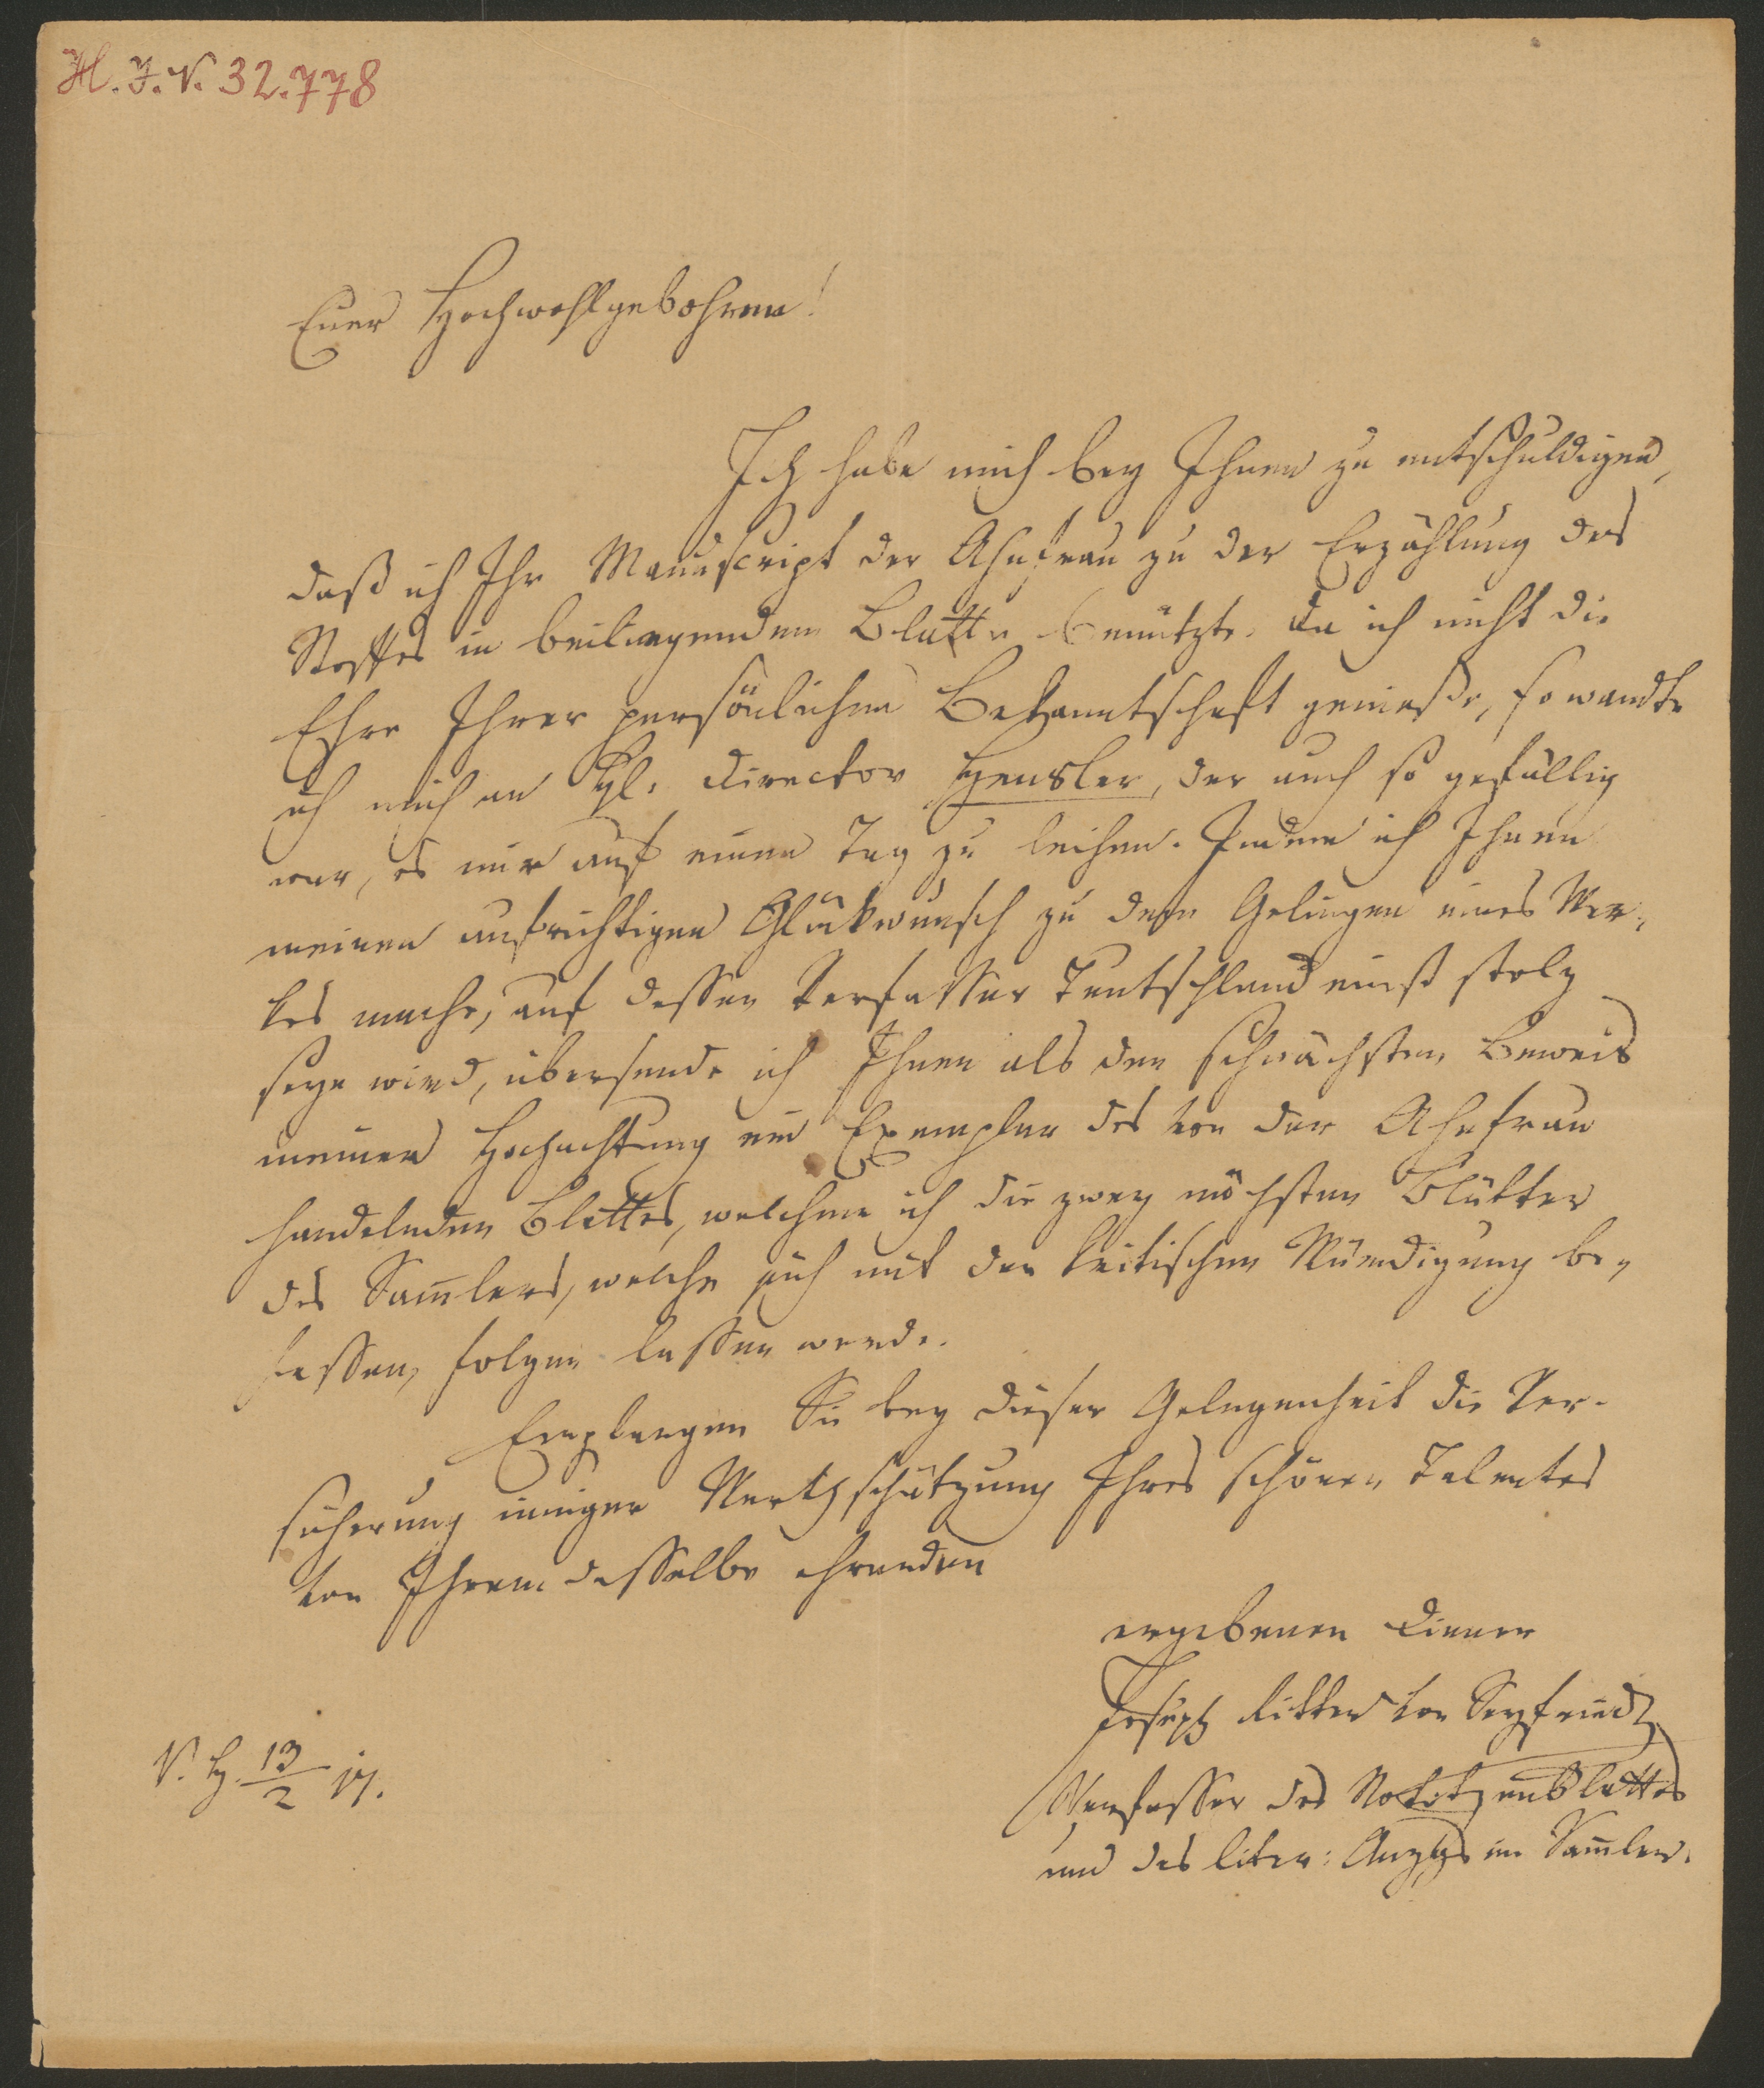 H.I.N. 32.778
Euer Hochwohlgebohren!
Ich habe mich bey Ihnen zu entschuldigen,
daß ich Ihr Manuscript der Ahnfrau zu der Erzählung des
Stoffes in beiliegendem Blatte benützte. Da ich nicht die
Ehre Ihrer persönlichen Bekanntschaft genieße, so wandte
ich mich an Hl. Director Hensler, der auch so gefällig
war, es mir auf einen Tag zu leihen. Indem ich Ihnen
meinen aufrichtigen Glückwunsch zu dem Gelingen eines Wer-
kes mache, auf dessen Verfasser Teutschland einst stolz
seyn wird, übersende ich Ihnen als den schwächsten Beweis
meiner Hochachtung ein Exemplar des von der Ahnfrau
handelnden Blattes, welchem ich die zwey nächsten Blätter
des Sam̄lers, welche sich mit der kritischen Würdigung be-
fassen, folgen lassen werde.
Empfangen Sie bey dieser Gelegenheit die Ver-
sicherung inniger Werthschätzung Ihres schönen Talentes
von Ihrem dasselbe ehrenden
ergebenen Diener
Joseph Ritter von Seyfried
Verfasser des Notitzenblattes
und des liter: Anzgs im Sam̄ler.
V. H. 13/2 17.